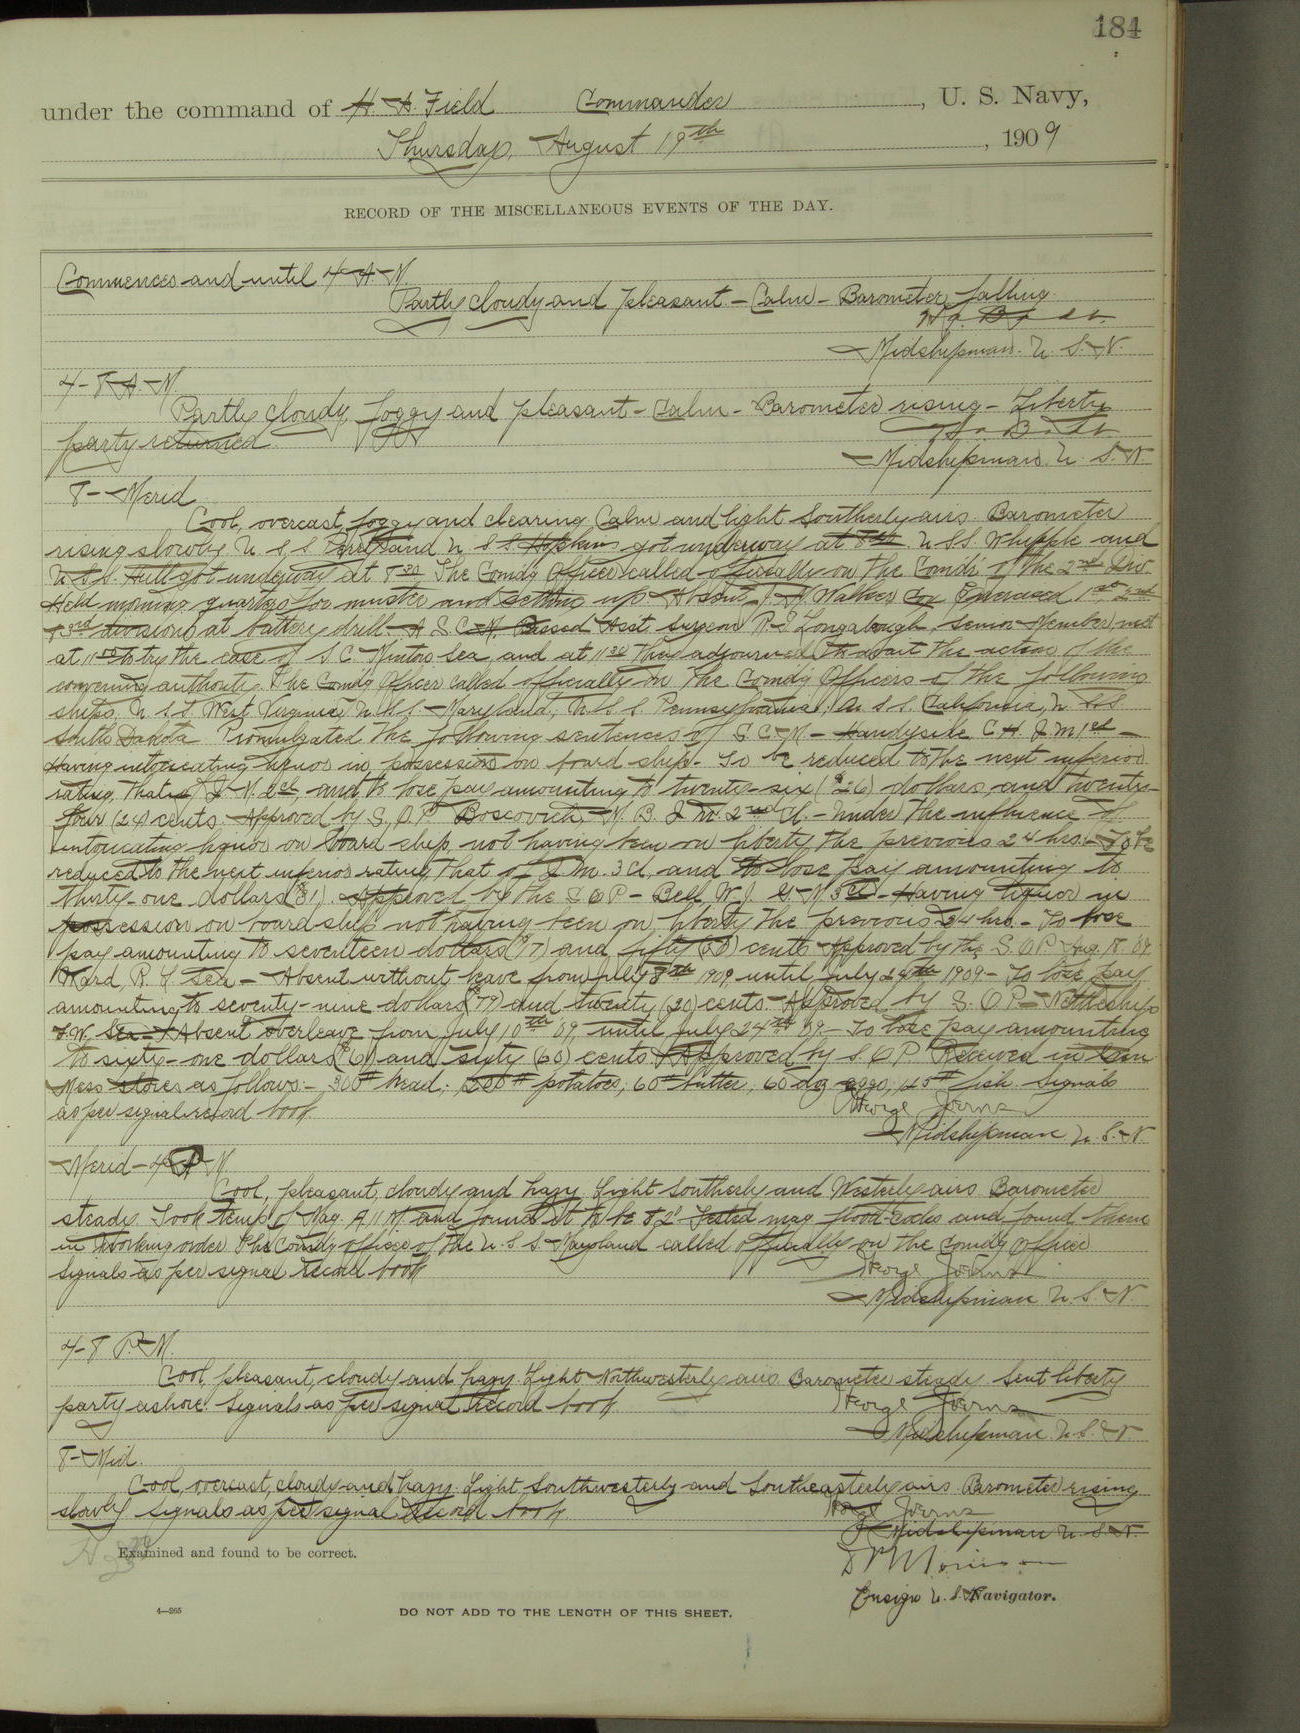 184
under the command of H. A. Field Commander, U. S. Navy,
Thursday, August 19th, 1909
RECORD OF THE MISCELLANEOUS EVENTS OF THE DAY.
Commences and until 4 A M
Partly cloudy and pleasant - Calm - Barometer falling.
Midshipman. U. S. N.
4-8 A. M.
Partly cloudy, foggy and pleasant - Calm - Barometer rising - Liberty
party returned.
Midshipman U. S. N.
8 - Merid
Cool, overcast, foggy and clearing, Calm and light Southerly airs. Barometer
rising slowly U S S Perry and U S S Hopkins got underway at U.S.S. Whipple and
U.S.S. Hull got underway at 8 30 The Comdg Officer called officially on the Comdr. of the 2nd Div.
Held morning quarters for muster and setting up. Absent J. N. Walker Exercised 1st 2nd
& 3rd divisions at battery drill. A S C M, Passed Asst Surgeon P. E Longabaugh, Senior Member met
at 11 to try the case of S. C. Minton Sea, and at 11 30 they adjourned to await the action of the
convening authority. The Comdg Officer called officially on the Comdg Officers of the following
ships, U.S.S. West Virginia, U.S.S. Maryland, U S S Pennsylvania, U. S S. California, U S S
South Dakota Promulgated the following sentences of S C M - Handyside C H F M 1cl -
Having intoxicating liquor in possession on board ship. To be reduced to the next inferior
rating, that of F. M. 2cl, and to lose pay amounting to twenty-six ($26) dollars and twenty-
four (24) cents. Approved by S. O P. Boscovich, N. B. F M. 2nd Cl. - Under the influence of
intoxicating liquor on board ship, not having been on liberty the previous 24 hrs. - To be
reduced to the next inferior rating, that of F M. 3 Cl, and to lose pay amounting to
thirty-one dollars ($31). Approved by the S O P - Bell, W. J. G. M 3 Cl - Having liquor in
possession on board ship not having been on liberty the previous 24 hrs. - To lose
pay amounting to seventeen dollars ($17) and fifty (50) cents Approved by the S O P Aug. 18 '09
Ward, R. L Sea - Absent without leave from July 8th 1909 until July 24th 1909 - To lose pay
amounting to seventy-nine dollars ($79) and twenty (20) cents. Approved by S. O P -
F. W. Sea - Absent overleave from July 10th '09 until July 24th '09. - To lose pay amounting
to sixty-one dollars ($61) and sixty (60) cents Approved by S. O P. Received in Gen
Mess stores as follows: - 300# bread; 200# potatoes, 60# butter, 60 dog eggs, 140# fish. Signals
as per signal record book.
George Joerns
Midshipman U. S. N.
Merid - 4 P M
Cool, pleasant, cloudy and hazy. Light Southerly and Westerly airs. Barometer
steady. Took temp. of Mag. A 11 M. and found it to be 82° Tested mag flood-cocks and found them
in working order The Comdg officer of the U. S S. Maryland called officially on the Comdg Officer
Signals as per signal record book
George Joerns
Midshipman U. S. N.
4-8 P. M.
Cool, pleasant, cloudy and hazy. Light Northwesterly airs. Barometer steady Sent liberty
party ashore. Signals as per signal record book.
George Joerns
Midshipman U. S. N.
8 - Mid.
Cool, overcast, cloudy and hazy. Light Southwesterly and Southeasterly airs. Barometer rising
slowly Signals as per signal record book.
George Joerns
Midshipman U. S. N.
Examined and found to be correct.
Ensign U. S. N. Navigator.
4—265
DO NOT ADD TO THE LENGTH OF THIS SHEET.